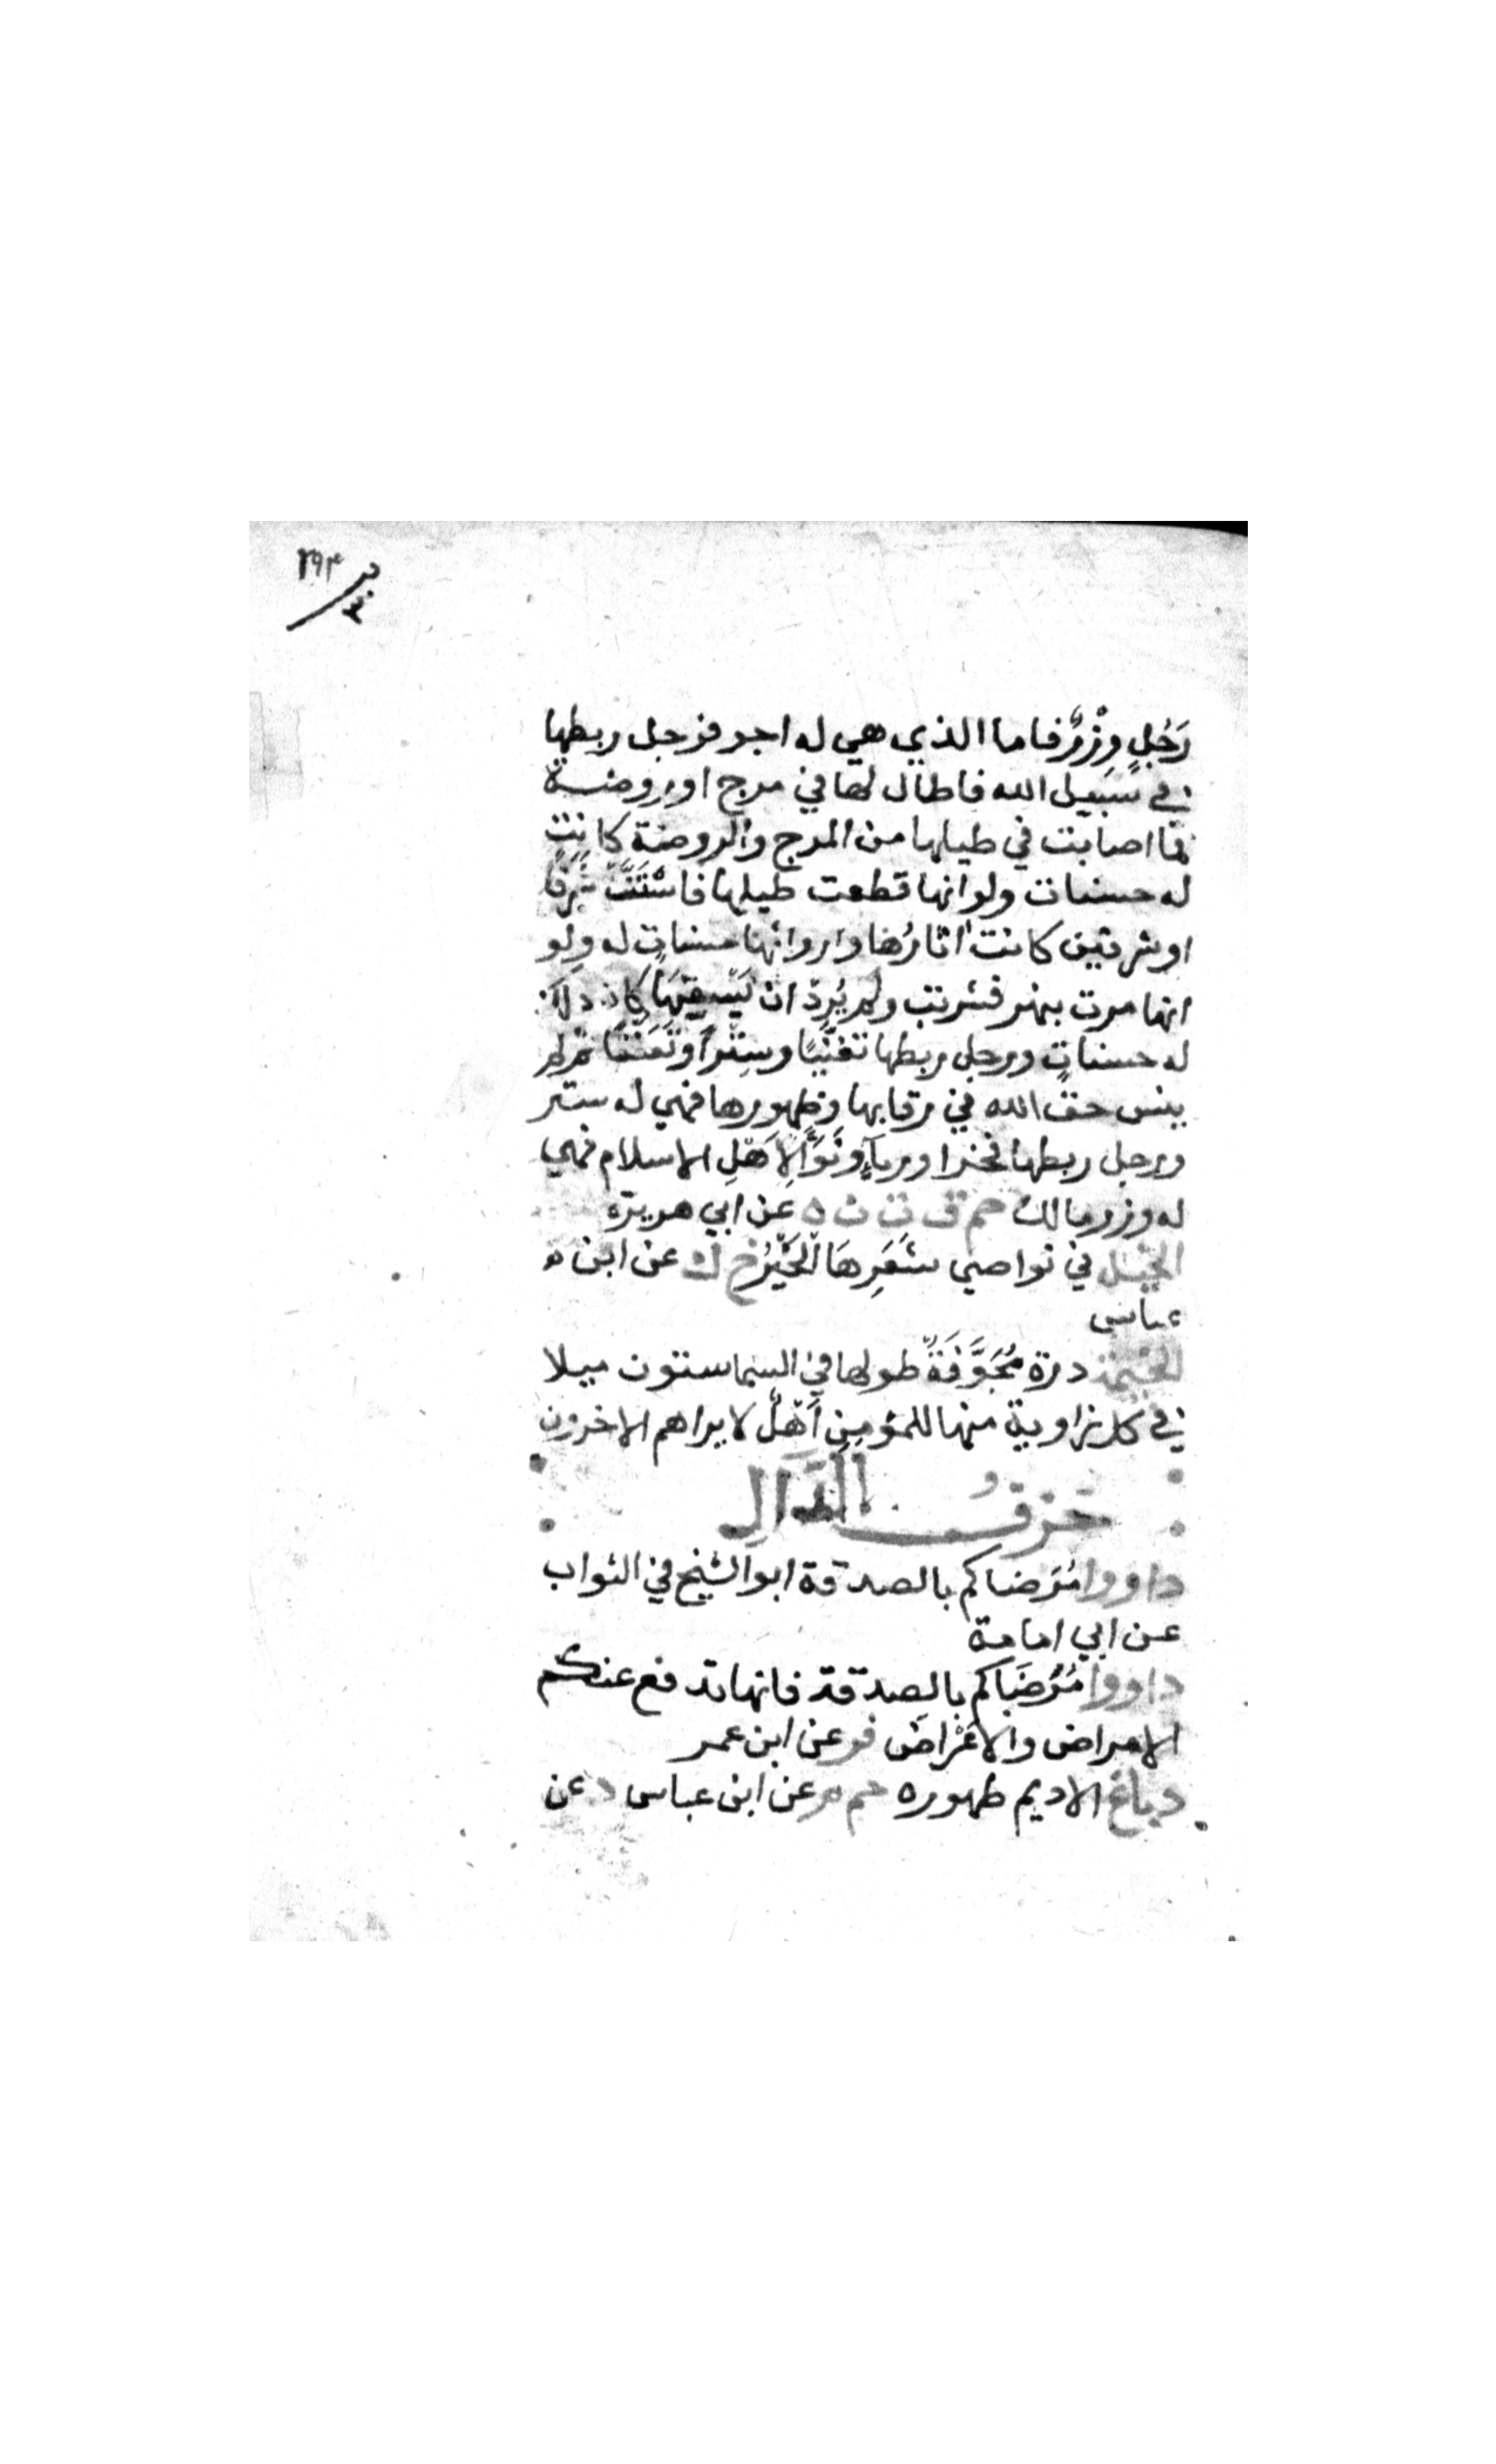 ٢٩٣
رَجُلٍ وِزْرٌ فاما الذي هي له اجر فرجل ربطها
في سَبيل الله فاطال لها في مرج او روضة
فما اصابت في طيلها من المرج والروضة كانت
له حسنات ولو انها قطعت طيلها فاسْتَنَّتْ شَرَفًا
او شرفين كانت اثارُها واروانها حسناتٍ له ولو
انها مرت بنهر فشربت ولم يُرِدْ ان يَسقيَهَا كان ذلك
له حسناتٍ ورجل ربطها تغَنِّيًا وسِتْرًا وتَعَفُّفًا ثم لم
ينس حقَّ الله في رقابها وظهورها فهي له ستر
ورجل ربطها فخرا وريآءً ونِوَآءً لِاَهْلِ الاسلام فهي
له وزر مالك حم ق ت ن ه عن ابي هريرة
الخيل في نواصي شَقَرِهَا الخَيْرُ خ ك عن ابن
عباس
الخيمة درة مُجَوَّفَةٌ طولها في السما ستون ميلا
في كل زاوية منها للمؤمن أَهْلٌ لا يراهم الاخرون
حَرْفُ الدَّالِ
داووا مَرْضاكم بالصدقة ابو الشيخ في الثواب
عن ابي امامة
داووا مَرْضَاكم بالصدقة فانها تدفع عنكم
الامراض والاعْراض فر عن ابن عمر
دباغ الاديم طهوره حم م عن ابن عباس د عن